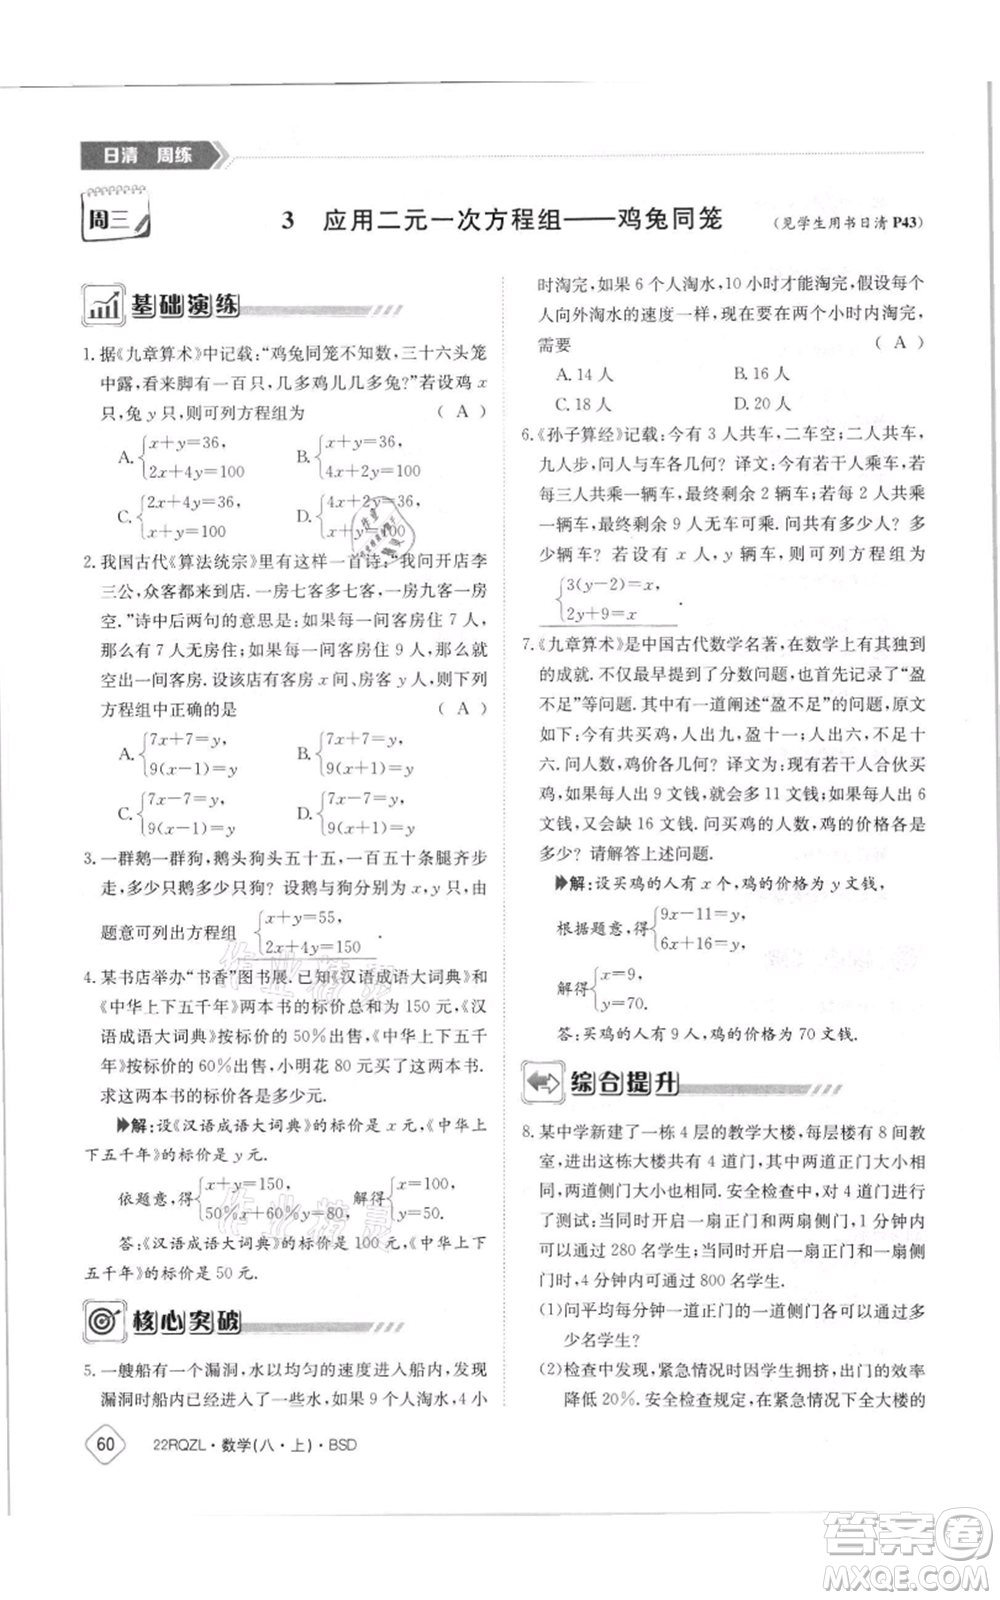 日清 周练
周三
3 应用二元一次方程组——鸡兔同笼 (见学生用书日清 P43)
基础演练
1. 据《九章算术》中记载:“鸡兔同笼不知数,三十六头笼
中露,看来脚有一百只,几多鸡儿几多兔?”若设鸡 x
只,兔 y 只,则可列方程组为 ( A )
A. {x+y=36, 2x+4y=100 B. {x+y=36, 4x+2y=100
C. {2x+4y=36, x+y=100 D. {4x+2y=36, x+y=100
2. 我国古代《算法统宗》里有这样一首诗:“我问开店李
三公,众客都来到店. 一房七客多七客,一房九客一房
空. ”诗中后两句的意思是:如果每一间客房住 7 人,那
么有 7 人无房住;如果每一间客房住 9 人,那么就
空出一间客房. 设该店有客房 x 间、房客 y 人,下列
方程组中正确的是 ( A )
A. {7x+7=y, 9(x-1)=y B. {7x+7=y, 9(x+1)=y
C. {7x-7=y, 9(x-1)=y D. {7x-7=y, 9(x+1)=y
3. 一群鹅一群狗,鹅头狗头五十五,一百五十条腿齐步
走,多少只鹅多少只狗? 设鹅与狗分别为 x 只、y 只,由
题意可列出方程组 {x+y=55, 2x+4y=150 .
4. 某书店举办“书香”图书展. 已知《汉语成语大词典》和
《中华上下五千年》两本书的标价总和为 150 元,《汉
语成语大词典》按标价的 50% 出售,《中华上下五千
年》按标价的 60% 出售,小明花 80 元买了这两本书.
求这两本书的标价各是多少元.
解:设《汉语成语大词典》的标价是 x 元,《中华上
下五千年》的标价是 y 元.
依题意,得{x+y=150, 50%x+60%y=80, 解得{x=100, y=50.
答:《汉语成语大词典》的标价是 100 元,《中华上下
五千年》的标价是 50 元.
核心突破
5. 一艘船有一个漏洞,水以均匀的速度进入船内,发现
漏洞时船内已经进入一些水,如果 9 个人淘水,4 小
时淘完,如果 6 个人淘水,10 小时才能淘完,假设每个
人向外淘水的速度一样,现在要在两个小时内淘完,
需要 ( A )
A. 14 人 B. 16 人
C. 18 人 D. 20 人
6. 《孙子算经》记载:今有 3 人共车,二车空;二人共车,
九人步,问人与车各几何? 译文:今有若干人乘车,每
三人共乘一辆车,最终剩余 2 辆车;若每 2 人共乘
一辆车,最终剩余 9 人无车可乘. 问共有多少人? 多
少辆车? 若设有 x 人,y 辆车,则可列方程组为
{3(y-2)=x, 2y+9=x .
7. 《九章算术》是中国古代数学名著,在数学上有其独到
的成就,不仅最早提到了分数问题,首先记录了“盈
不足”等问题. 其中有一道阐述“盈不足”的问题,原文
如下:今有共买鸡,人出九,盈十一;人出六,不足十
六. 问人数,鸡价各几何? 译文为:现有若干人合伙买
鸡,如果每人出 9 文钱,就会多 11 文钱;如果每人出 6
文钱,又会缺 16 文钱. 问买鸡的人数,鸡的价格各是
多少? 请解答上述问题.
解:设买鸡的人有 x 个,鸡的价格为 y 文钱,
根据题意,得{9x-11=y, 6x+16=y,
解得{x=9, y=70.
答:买鸡的人有 9 人,鸡的价格为 70 文钱.
综合提升
8. 某中学新建了一栋 4 层的教学大楼,每层楼有 8 间教
室,进出这栋大楼共有 4 道门,其中两道正门大小相
同,两道侧门大小也相同. 安全检查中,对 4 道门进行
了测试:当同时开启一扇正门和两扇侧门,2 分钟可以
通过 280 名学生;当同时开启一扇正门和一扇侧门
时,4 分钟内可以通过 800 名学生.
(1)问平均每分钟一道正门和一道侧门各可以通过多
少名学生?
(2)检查中发现,紧急情况时因学生拥挤,出门的效率
降低 20%. 安全检查规定,在紧急情况下全大楼的
60 22RQZL·数学(八·上)·BSD
作业精灵
作业精灵
答案圈
MXQE.COM